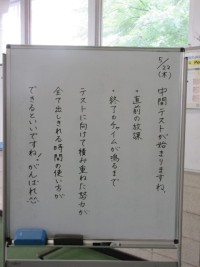 5/22
(木)
中間テストが始まりますね。
・直前の放課
・終了のチャイムが鳴るまで
テストに向けて積み重ねた努力が
全て出しきれる時間の使い方が
できるといいですね!がんばれ